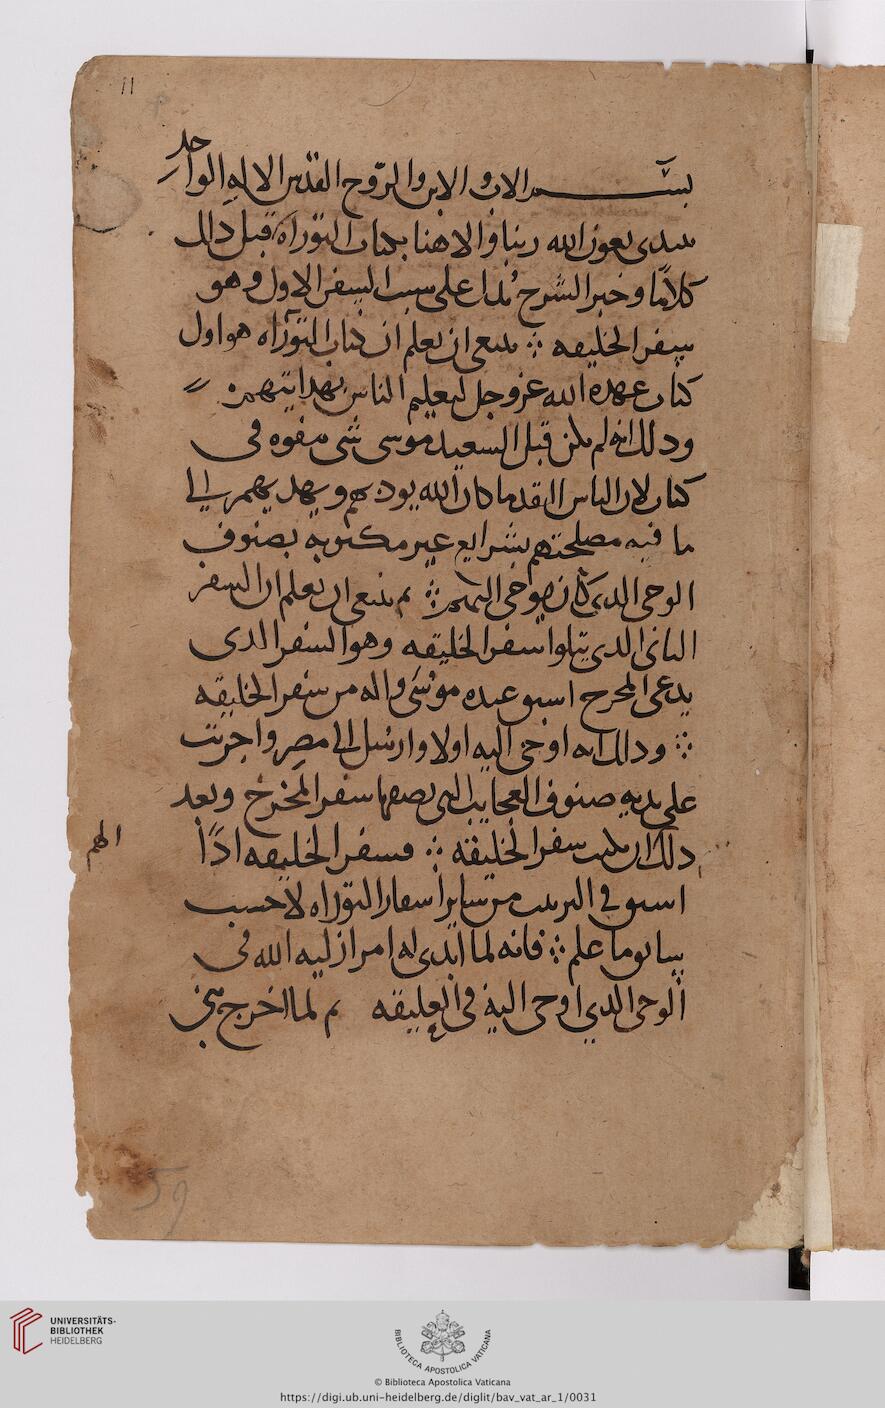 11
بسم الاب والابن والروح القدس الاله الواحد
نبتدى بعون الله ربنا والاهنا بكتاب التوراه قبل ذلك
كلاما وخبر الشرح يدل على سبب السفر الاول وهو
سفر الخليقه ينبغى ان يعلم ان كتاب التوراه هو اول
كتاب عهده الله عز وجل لتعليم الناس بهدايتهم
وذلك انه لم يكن قبل السعيد موسى شى منفوه فى
كتاب لان الناس القدما كان الله يودبهم ويهديهم الي
ما فيه مصلحتهم بشرايع غير مكتوبه بصنوف
الوحى الذى كان يوحى اليهم ثم ينبغى ان يعلم ان السفر
الثانى الذى يتلوا سفر الخليقه وهو السفر الذى
يدعى المخرج اسبق عبده موسى واله من سفر الخليقه
وذلك انه اوحى اليه اولا وارسل الى مصر واجريت
على يديه صنوف العجايب التى يصفها سفر المخرج وبعد
ذلك ان يكتب سفر الخليقه فسفر الخليقه اذًا
الهم
اسبق في الترتيب من ساير اسفار التوراه لا حسب
ما علم فانه لما ابتدى له امر ازليه الله فى
الوحى الذي اوحى اليه فى العليقه ثم لما اخرج بنى
59
UNIVERSITÄTS-
BIBLIOTHEK
HEIDELBERG
BIBLIOTECA APOSTOLICA VATICANA
© Biblioteca Apostolica Vaticana
https://digi.ub.uni-heidelberg.de/diglit/bav_vat_ar_1/0031